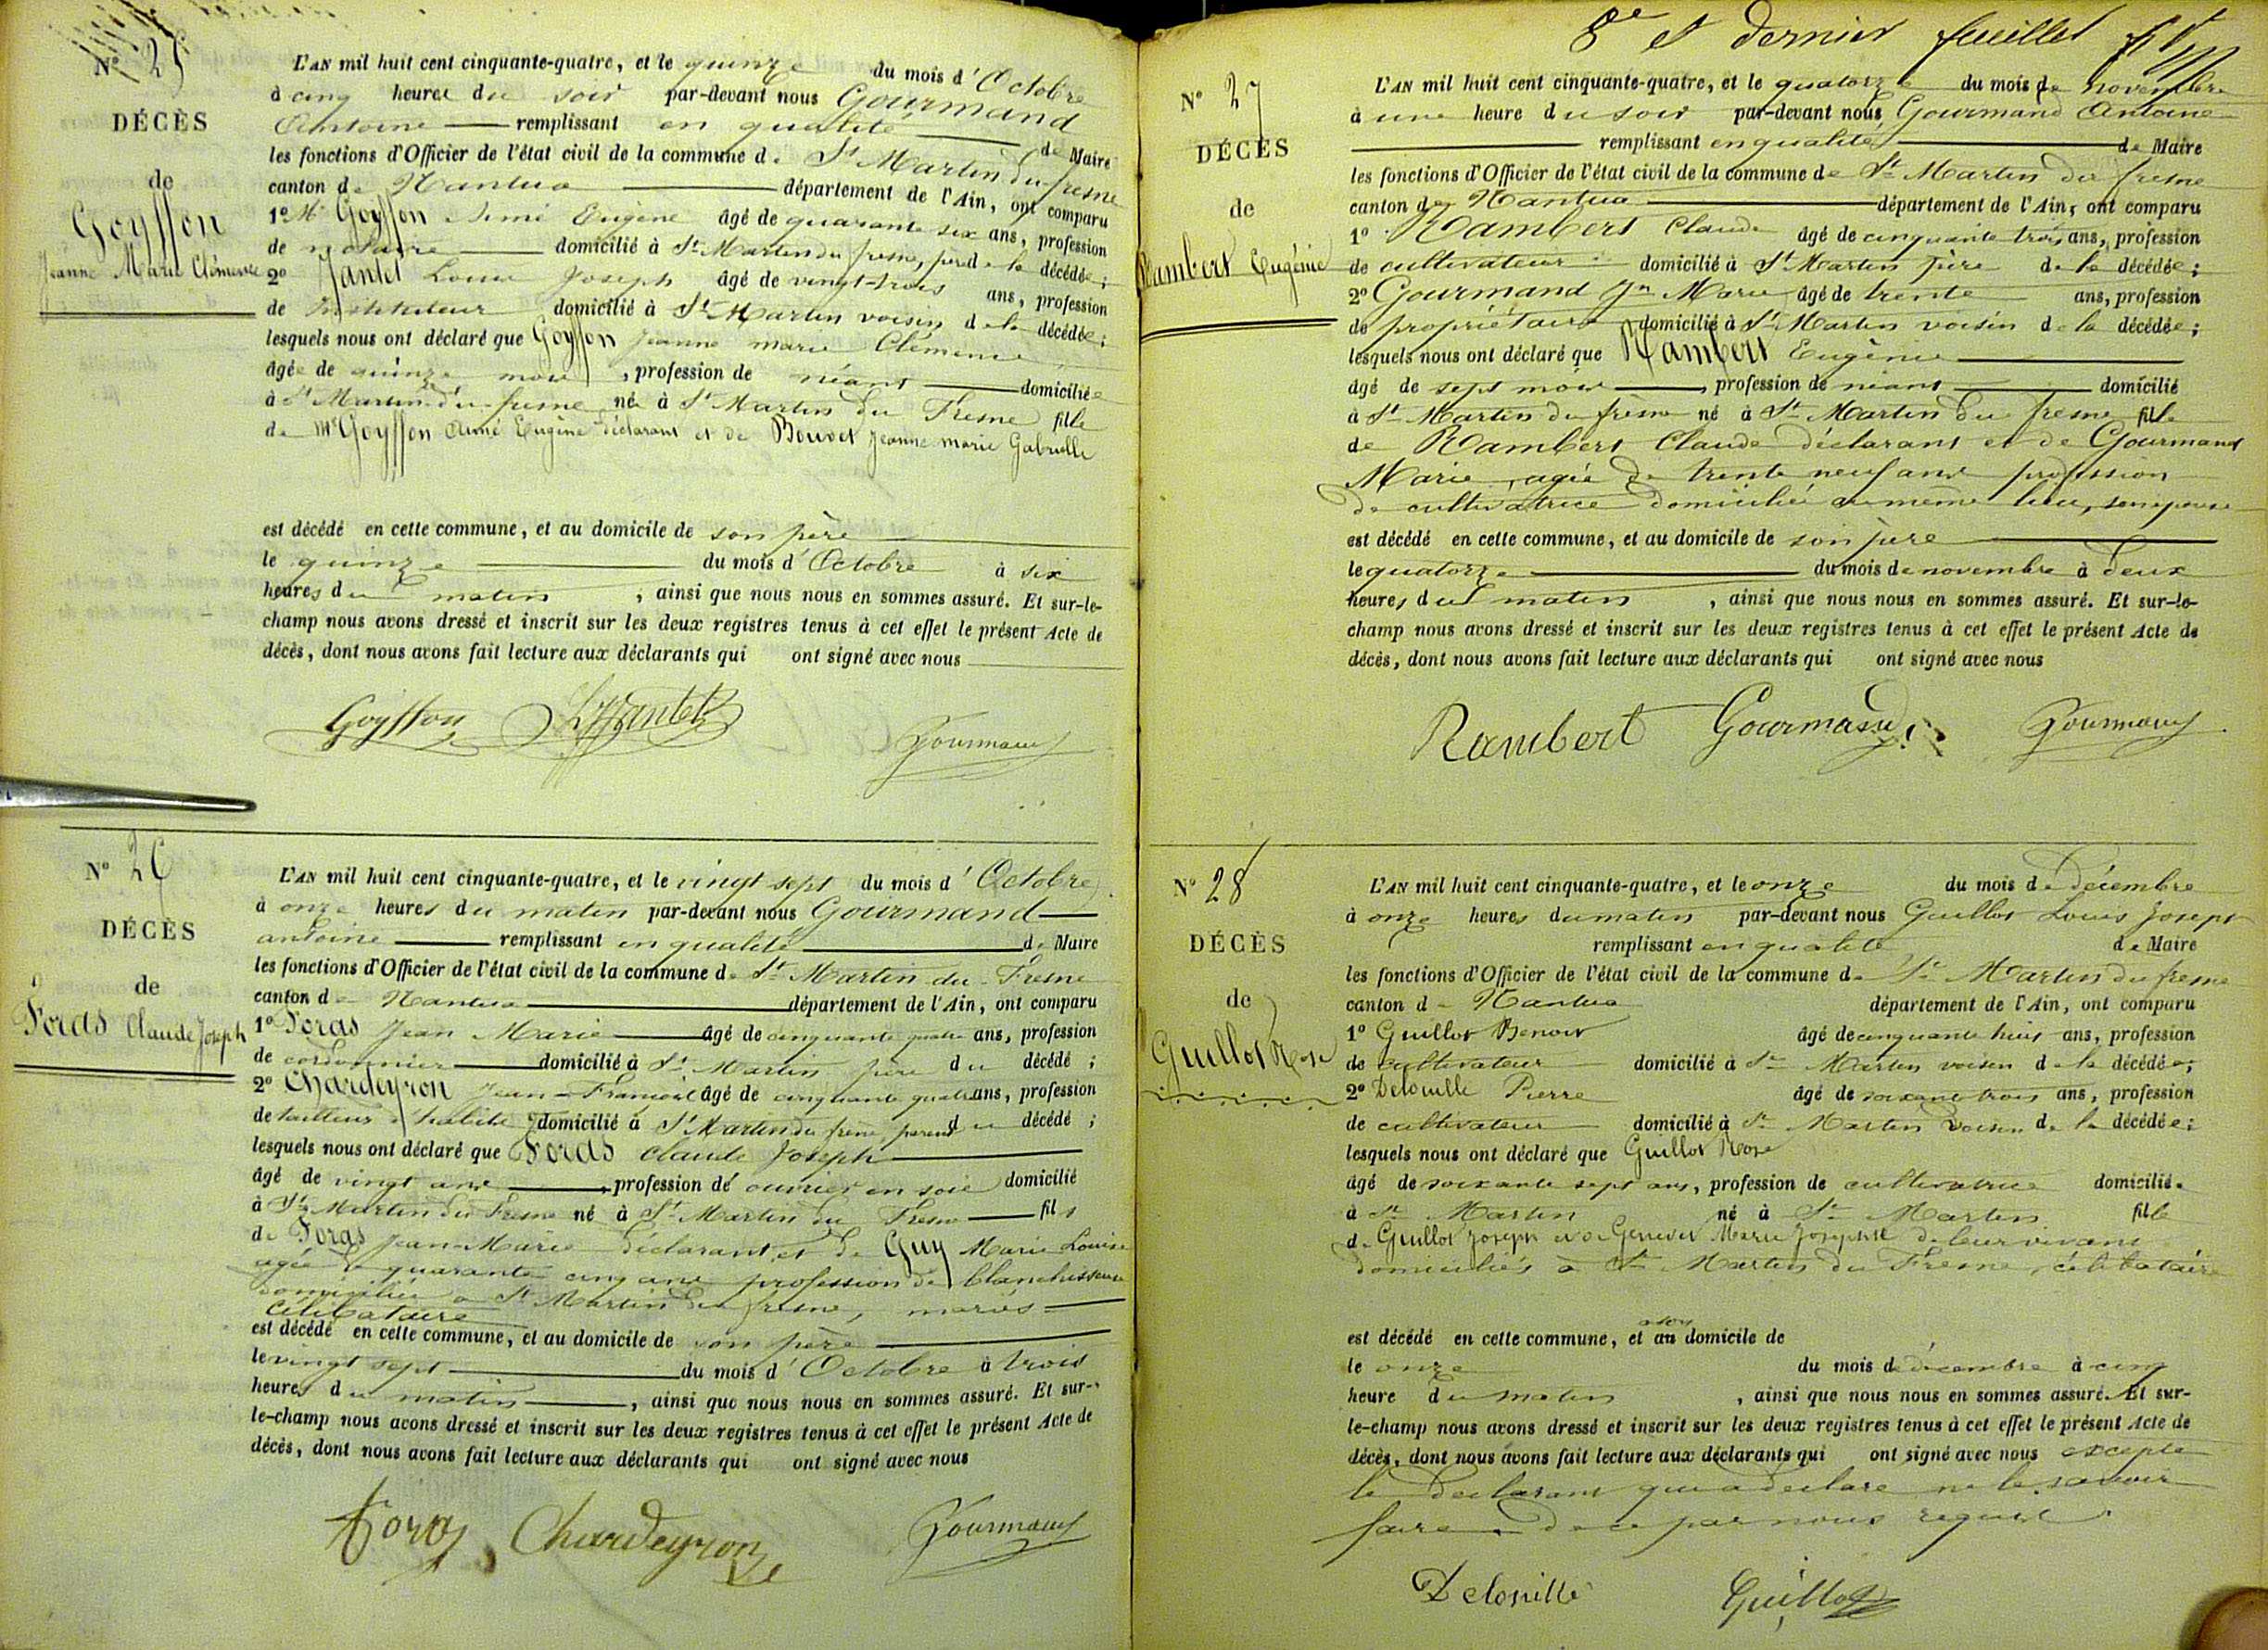 N° 25
DÉCÈS
de
Goyffon
Jeanne Marie Clémence
L'AN mil huit cent cinquante-quatre, et le quinze du mois d'Octobre
à cinq heures du soir par-devant nous Gourmand
Antoine remplissant en qualité de Maire
les fonctions d'Officier de l'état civil de la commune de St Martin du fresne
canton de Nantua département de l'Ain, ont comparu
1° Me Goyffon Aimé Eugène âgé de quarante six ans, profession
de notaire domicilié à St Martin du fresne, père de la décédée;
2° Jantet Louis Joseph âgé de vingt-trois ans, profession
de Instituteur domicilié à St Martin voisin de la décédée;
lesquels nous ont déclaré que Goyffon Jeanne marie Clémence
âgée de quinze mois, profession de néant domiciliée
à St Martin du fresne née à St Martin du Fresne fille
de Me Goyffon Aimé Eugène déclarant et de Bouvet Jeanne marie Gabrielle
est décédé en cette commune, et au domicile de son père
le quinze du mois d'Octobre à six
heures du matin, ainsi que nous nous en sommes assuré. Et sur-le-
champ nous avons dressé et inscrit sur les deux registres tenus à cet effet le présent Acte de
décès, dont nous avons fait lecture aux déclarants qui ont signé avec nous
Goyffon LJJantet Gourmand
N° 26
DÉCÈS
de
Foras Claude Joseph
L'AN mil huit cent cinquante-quatre, et le vingt sept du mois d'Octobre
à onze heures du matin par-devant nous Gourmand
antoine remplissant en qualité de Maire
les fonctions d'Officier de l'état civil de la commune de St Martin du Fresne
canton de Nantua département de l'Ain, ont comparu
1° Foras Jean Marie âgé de cinquante quatre ans, profession
de cordonnier domicilié à St Martin père du décédé;
2° Chardeyron Jean-François âgé de cinquante quatre ans, profession
de tailleur d'habits domicilié à St Martin du frêne, parent du décédé;
lesquels nous ont déclaré que Foras Claude Joseph
âgé de vingt ans, profession de ouvrier en soie domicilié
à St Martin du Fresne né à St Martin du Fresne fils
de Foras Jean-Marie déclarant et de Guy Marie Louise
agée de quarante cinq ans profession de blanchisseuse
domiciliée à St Martin du fresne, mariés
célibataire
est décédé en cette commune, et au domicile de son père
le vingt sept du mois d'Octobre à trois
heures du matin, ainsi que nous nous en sommes assuré. Et sur-
le-champ nous avons dressé et inscrit sur les deux registres tenus à cet effet le présent Acte de
décès, dont nous avons fait lecture aux déclarants qui ont signé avec nous
Foras Chardeyron Gourmand
8e et dernier feuillet
N° 27
DÉCÈS
de
Rambert Eugénie
L'AN mil huit cent cinquante-quatre, et le quatorze du mois de novembre
à une heure du soir par-devant nous Gourmand Antoine
remplissant en qualité de Maire
les fonctions d'Officier de l'état civil de la commune de St Martin du fresne
canton de Nantua département de l'Ain, ont comparu
1° Rambert Claude âgé de cinquante trois ans, profession
de cultivateur domicilié à St Martin père de la décédée;
2° Gourmand Jn Marie âgé de trente ans, profession
de propriétaire domicilié à St Martin voisin de la décédée;
lesquels nous ont déclaré que Rambert Eugénie
âgé de sept mois, profession de néant domicilié
à St Martin du frêne né à St Martin du fresne fille
de Rambert Claude déclarant et de Gourmand
Marie, agée de trente neuf ans profession
de cultivatrice domiciliée au même lieu, son epouse
est décédé en cette commune, et au domicile de son père
le quatorze du mois de novembre à deux
heures du matin, ainsi que nous nous en sommes assuré. Et sur-le-
champ nous avons dressé et inscrit sur les deux registres tenus à cet effet le présent Acte de
décès, dont nous avons fait lecture aux déclarants qui ont signé avec nous
Rambert Gourmand Gourmand
N° 28
DÉCÈS
de
Guillot Rose
L'AN mil huit cent cinquante-quatre, et le onze du mois de Décembre
à onze heures du matin par-devant nous Guillot Louis Joseph
remplissant en qualité de Maire
les fonctions d'Officier de l'état civil de la commune de St Martin du fresne
canton de Nantua département de l'Ain, ont comparu
1° Guillot Benoit âgé de cinquante huit ans, profession
de cultivateur domicilié à St Martin voisin de la décédée;
2° Delouille Pierre âgé de soixante trois ans, profession
de cultivateur domicilié à St Martin voisin de la décédée;
lesquels nous ont déclaré que Guillot Rose
âgé de soixante sept ans, profession de cultivatrice domiciliée
à St Martin né à St Martin fille
de Guillot Joseph et de Genevet Marie Josephte de leur vivant
domiciliés à St Martin du Fresne, célibataire
est décédé en cette commune, et au a son domicile de
le onze du mois de décembre à cinq
heure du matin, ainsi que nous nous en sommes assuré. Et sur-
le-champ nous avons dressé et inscrit sur les deux registres tenus à cet effet le présent Acte de
décès, dont nous avons fait lecture aux déclarants qui ont signé avec nous excepté
le déclarant qui a declaré ne le savoir
faire de ce par nous requis
Delouille Guillot